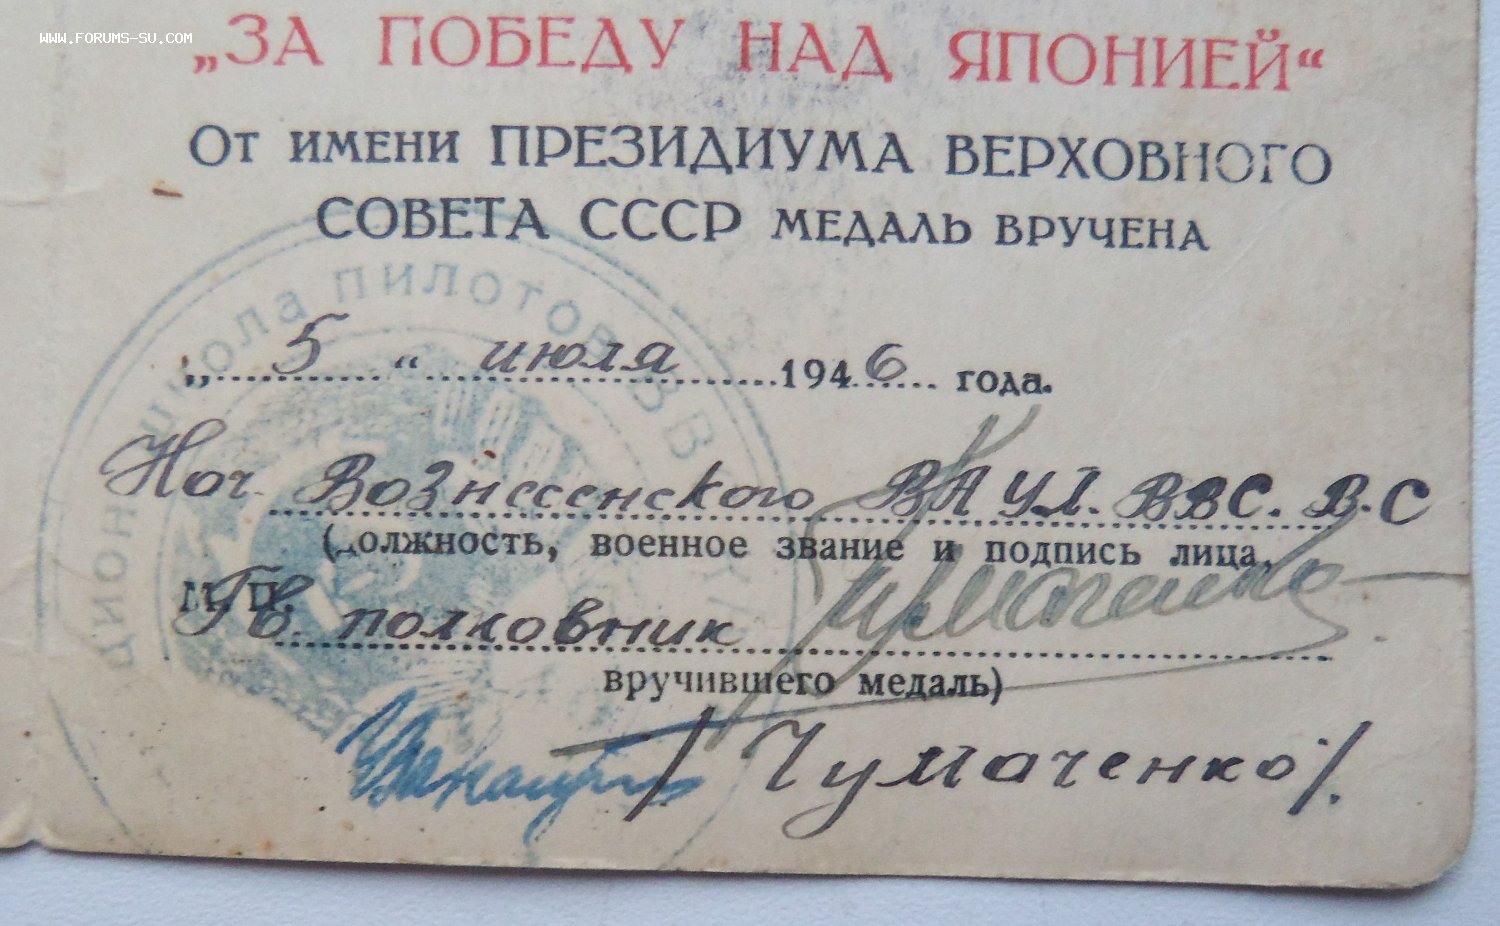 www.forums-su.com
„ЗА ПОБЕДУ НАД ЯПОНИЕЙ“
От имени ПРЕЗИДИУМА ВЕРХОВНОГО
СОВЕТА СССР медаль вручена
школа пилотов ВВ
„ 5 “ июля 1946 года.
Нач. Вознесенского ВАУЛ. ВВС. В.С
(должность, военное звание и подпись лица,
М. П.
Гв. полковник Чумаченко
вручившего медаль)
/Чумаченко/.